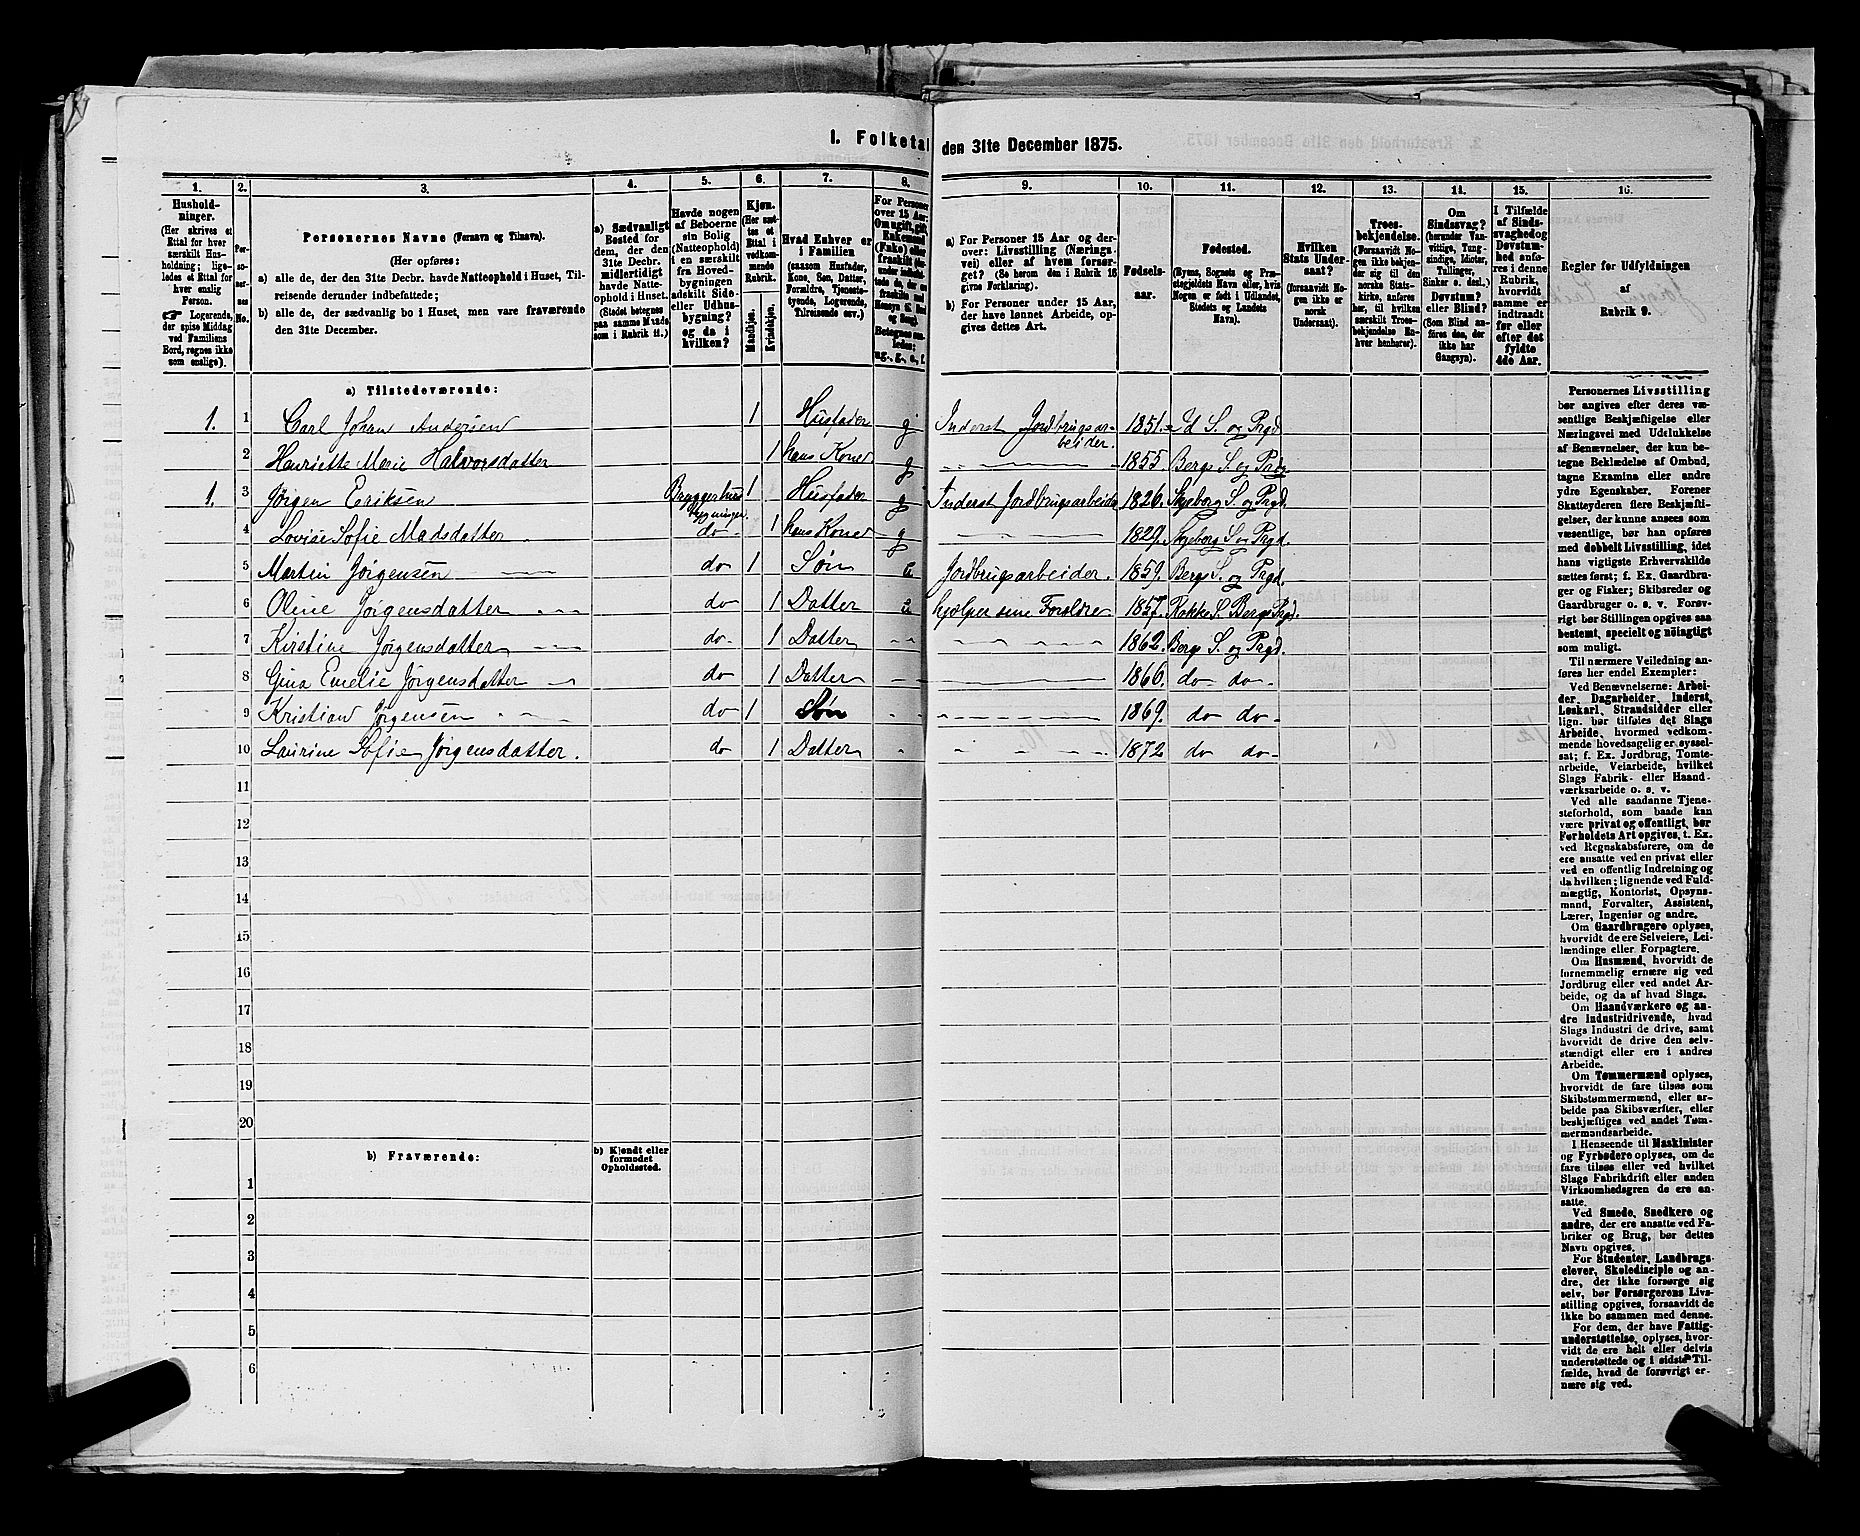 I. Folketal den 31te December 1875.
1. 2. 3. 4. 5. 6. 7. 8. 9. 10. 11. 12. 13. 14. 15. 16.
Hushold-
ninger.
(Her skrives et
Ettal for hver
særskilt Hus-
holdning; lige-
ledes et Ettal for
hver enslig
Person.
☞ Logerende,
der spise Middag
ved Familiens
Bord, regnes ikke
som enslige).
Per-
so-
ner-
nes
No.
Personernes Navne (Fornavn og Tilnavn).
(Her opføres:
a) alle de, der den 31te Decbr. havde Natteophold i Huset, Til-
reisende derunder indbefattede;
b) alle de, der sædvanlig bo i Huset, men vare fraværende
den 31te December.
a) Sædvanligt
Bosted for
dem, der den
31te Decbr.
midlertidigt
havde Natte-
ophold i Huset.
(Stedet betegnes
paa samme Maade
som i Rubrik 11.)
Havde nogen
af Beboerne
sin Bolig
(Natteophold)
i en særskilt
fra Hoved-
bygningen
adskilt Side-
eller Udhus-
bygning?
og da i
hvilken?
Kjøn.
(Her sæt-
tes et
Ettal i
vedkom-
mende
Rubrik.
Mandkjøn.
Kvindekjøn.
Hvad Enhver er
i Familien
(saasom Husfader,
Kone, Søn, Datter,
Forældre, Tjeneste-
tyende, Logerende,
Tilreisende osv.)
For Personer
over 15 Aar:
a) For Personer 15 Aar og der-
over: Livsstilling (Nærings-
vei) eller af hvem forsør-
get? (Se herom den i Rubrik 16
givne Forklaring).
b) For Personer under 15 Aar,
der have lønnet Arbeide, op-
gives dettes Art.
Fødsels-
aar.
Fødested.
(Byens, Sognets og Præ-
stegjeldets Navn eller, hvis
Nogen er født i Udlandet,
Stedets og Landets
Navn).
Hvilken
Stats Under-
saat?
(forsaavidt No-
gen ikke er
norsk
Undersaat).
Troes-
bekjendelse.
(Forsaavidt No-
gen ikke bekjen-
der sig til den
norske Stats-
kirke, anføres
her, til hvilken
særskilt Troes-
bekjendelse En-
hver henhører).
Om
Sindssvag?
(herunder Van-
vittige, Tung-
sindige, Idioter,
Tullinger,
Sinker o. desl.)
Døvstum?
eller Blind?
(Som Blind an-
føres den, der
ikke har
Gangsyn).
I Tilfælde
af Sinds-
svaghed og
Døvstum-
hed anfø-
res i denne
Rubrik,
hvorvidt
samme er
indtraadt
før eller
efter det
fyldte
4de Aar.
Regler for Udfyldningen
af
Rubrik 9.
a) Tilstedeværende:
1. 1 Carl Johan Andersen 1 Husfader g Inderst Jordbrugsar-
beider. 1851. Id S. og Prgd
2 Henriette Marie Halvorsdatter 1 hans Kone g 1855. Bergs S. og Prdg.
1. 3 Jørgen Eriksen Bryggerhus
bygningen 1 Husfader g Inderst Jordbrugsarbeider 1826. Skjeberg S. og Prgd.
4 Lovise Sofie Madsdatter do- 1 hans Kone g 1829. Skjeberg S. og Prgd.
5 Martin Jørgensen do 1 Søn u Jordbrugsarbeider. 1859. Bergs S. og Prgd.
6 Oline Jørgensdatter do 1 Datter u hjelper sine Forældre 1857. Rokke S. Bergs Prgd.
7 Kirstine Jørgensdatter do- 1 Datter 1862. Bergs S. og Prgd.
8 Gina Emelie Jørgensdatter do 1 Datter 1866. do- do-
9 Kristian Jørgensen do 1 Søn 1869. do do-
10 Laurine Sofie Jørgensdatter. do 1 Datter 1872 do do-
11
12
13
14
15
16
17
18
19
20
b) Fraværende:
b) Kjendt eller
formodet
Opholdssted.
1
2
3
4
5
6
Personernes Livsstilling
bør angives efter deres væ-
sentlige Beskjæftigelse eller
Næringsvei med Udelukkelse
af Benævnelser, der kun be-
tegne Beklædelse af Ombud,
tagne Examina eller andre
ydre Egenskaber. Forener
Skatteyderen flere Beskjæfti-
gelser, der kunne ansees som
væsentlige, bør han opføres
med dobbelt Livsstilling, idet
hans vigtigste Erhvervskilde
sættes først; f. Ex. Gaardbru-
ger og Fisker; Skibsreder og
Gaardbruger o. s. v. Forøv-
rigt bør Stillingen opgives saa
bestemt, specielt og nøiagtigt
som muligt.
Til nærmere Veiledning an-
føres her endel Exempler:
Ved Benævnelserne: Arbei-
der, Dagarbeider, Inderst,
Løskarl, Strandsidder eller
lign. bør tilføies det Slags
Arbeide, hvormed vedkom-
mende hovedsagelig er syssel-
sat; f. Ex. Jordbrug, Tomte-
arbeide, Veiarbeide, hvilket
Slags Fabrik- eller Haand-
værksarbeide o. s. v.
Ved alle saadanne Tjene-
steforhold, som baade kan
være privat og offentligt, bør
Forholdets Art opgives, t. Ex.
ved Regnskabsførere, om de
ere ansatte ved en privat eller
ved en offentlig Indretning og
da hvilken; lignende ved Fuld-
mægtig, Kontorist, Opsyns-
mand, Forvalter, Assistent,
Lærer, Ingeniør og andre.
Om Gaardbrugere oplyses,
hvorvidt de ere Selveiere, Lei-
lændinge eller Forpagtere.
Om Husmænd, hvorvidt de
fornemmelig ernære sig ved
Jordbrug eller ved andet Ar-
beide, og da af hvad Slags.
Om Haandværkere og an-
dre Industridrivende, hvad
Slags Industri de drive, samt
hvorvidt de drive den selv-
stændigt eller ere i andres
Arbeide.
Om Tømmermænd oplyses,
hvorvidt de fare tilsøs som
Skibstømmermænd, eller ar-
beide paa Skibsværfter, eller
beskjæftiges ved andet Tøm-
mermandsarbeide.
I Henseende til Maskinister
og Fyrbødere oplyses, om de
fare tilsøs eller ved hvilket
Slags Fabrikdrift eller anden
Virksomhedsgren de ere an-
satte.
Ved Smede, Snedkere og
andre, der ere ansatte ved Fa-
briker og Brug, bør dettes
Navn opgives.
For Studenter, Landbrugs-
elever, Skoledisciple og an-
dre, der ikke forsørge sig
selv, bør Forsørgerens Livs-
stilling opgives, forsaavidt de
ikke bo sammen med denne.
For dem, der have Fattig-
understøttelse, oplyses, hvor-
vidt de ere helt eller delvis
understøttede og i sidste Til-
fælde, hvad de forøvrigt er-
nære sig ved.